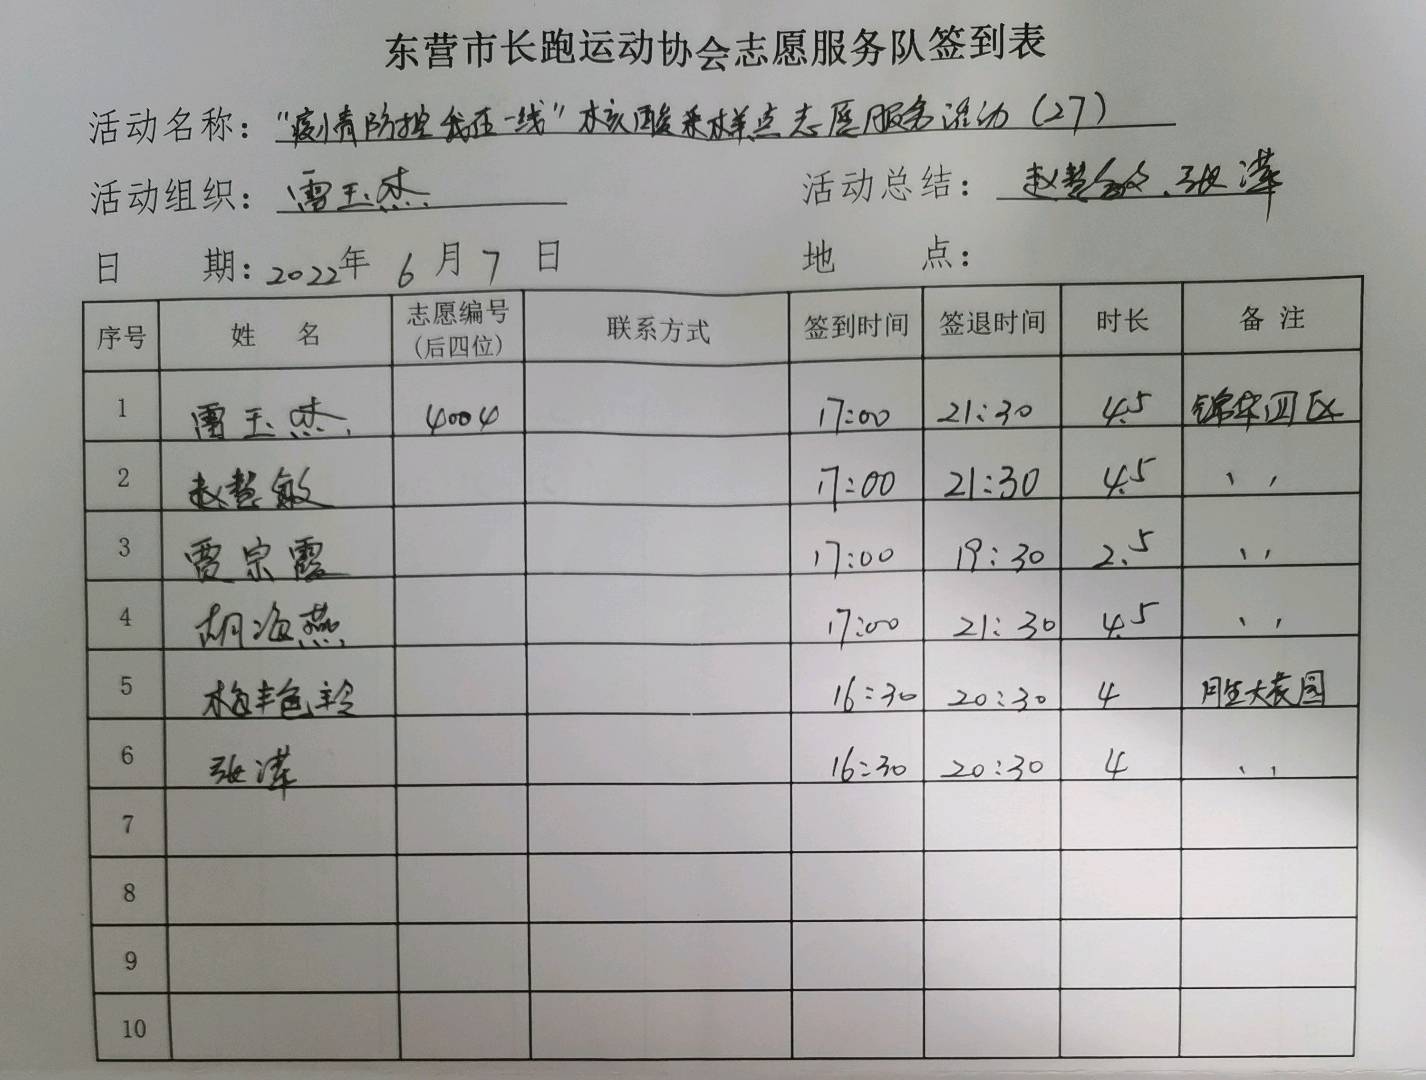 东营市长跑运动协会志愿服务队签到表
活动名称："疫情防控我在一线"核酸采样点志愿服务活动(27)
活动组织：雷玉杰 活动总结：赵慧敏、张萍
日 期：2022年 6月7日 地 点：
序号 姓 名 志愿编号(后四位) 联系方式 签到时间 签退时间 时长 备 注
1 雷玉杰 4004 17:00 21:30 4.5 锦华四区
2 赵慧敏 17:00 21:30 4.5 〃
3 贾宗霞 17:00 19:30 2.5 〃
4 胡海燕 17:00 21:30 4.5 〃
5 梅艳玲 16:30 20:30 4
6 张萍 16:30 20:30 4 〃
7
8
9
10